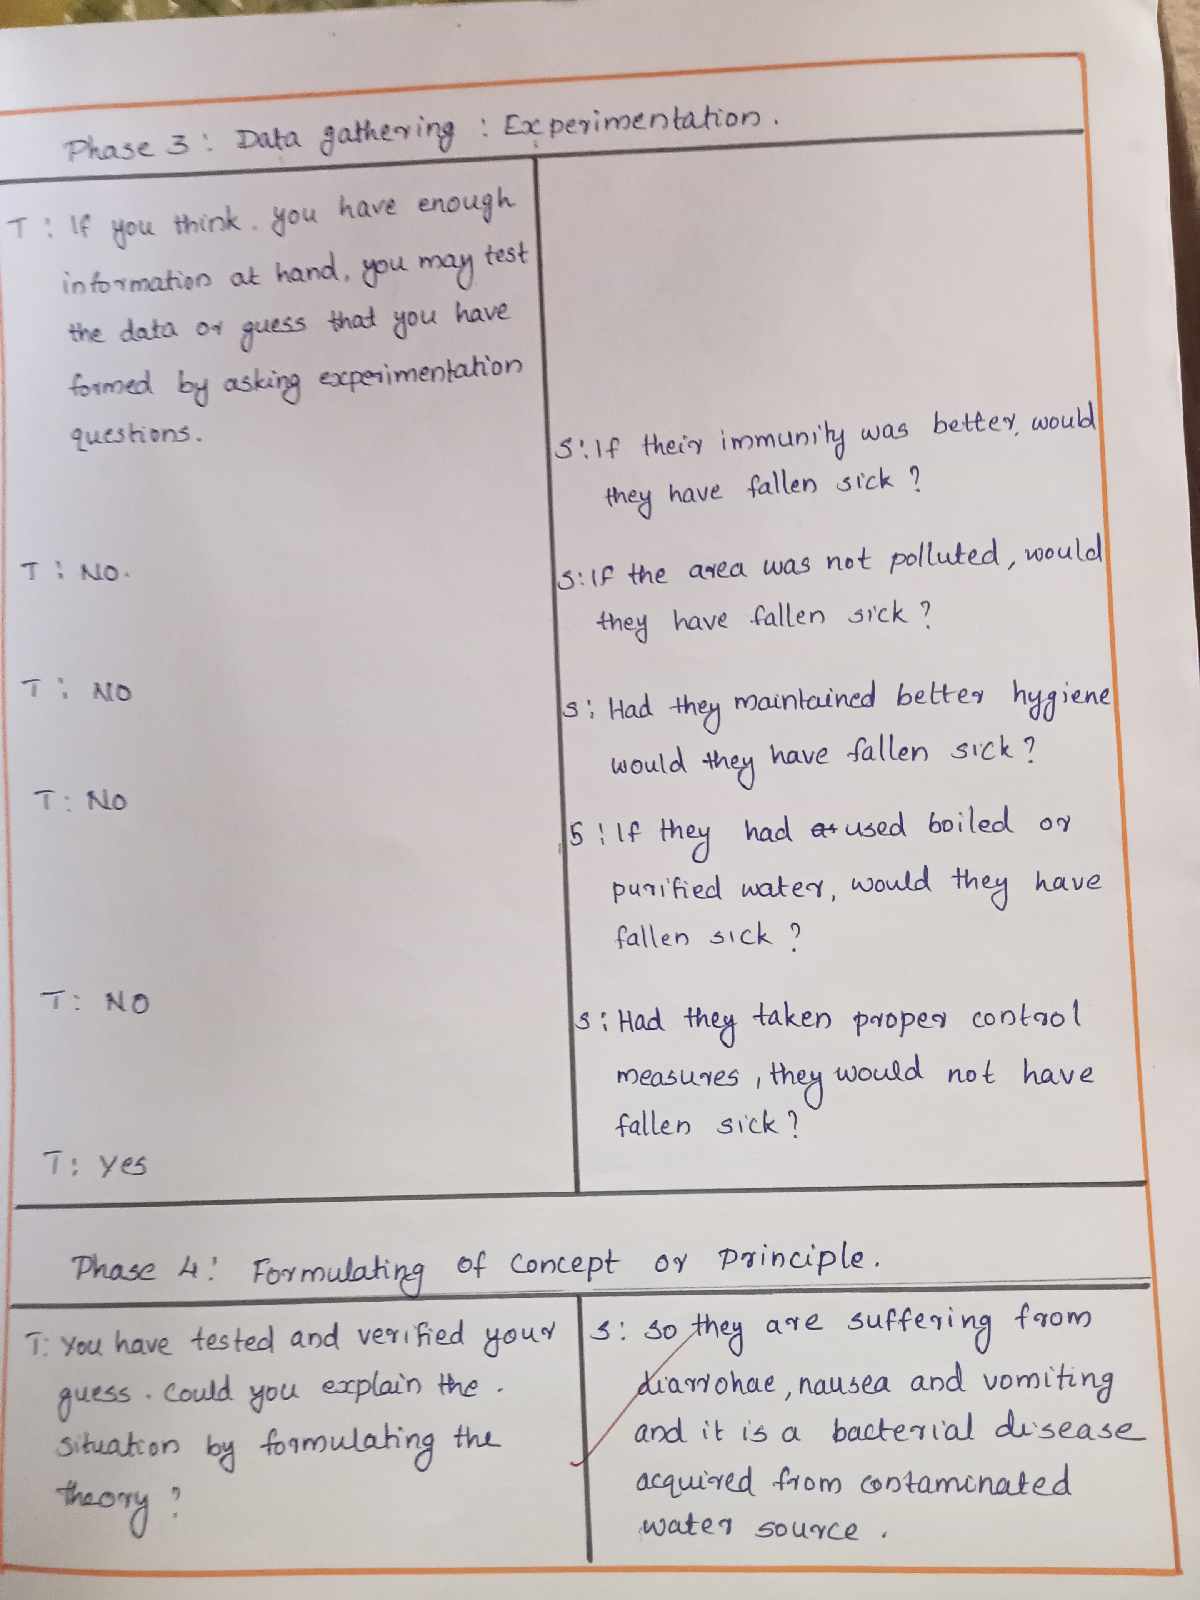 Phase 3: Data gathering : Experimentation.
T: If you think. you have enough
information at hand, you may test
the data or guess that you have
formed by asking experimentation
questions.
S: If their immunity was better, would
they have fallen sick?
T: NO.
S: If the area was not polluted, would
they have fallen sick?
T: NO
S: Had they maintained better hygiene
would they have fallen sick?
T: No
S: If they had used boiled or
purified water, would they have
fallen sick?
T: NO
S: Had they taken proper control
measures, they would not have
fallen sick?
T: Yes
Phase 4: Formulating of Concept or Principle.
T: You have tested and verified your
guess. Could you explain the.
situation by formulating the
theory?
S: So they are suffering from
diarrohae, nausea and vomiting
and it is a bacterial disease
acquired from contaminated
water source.